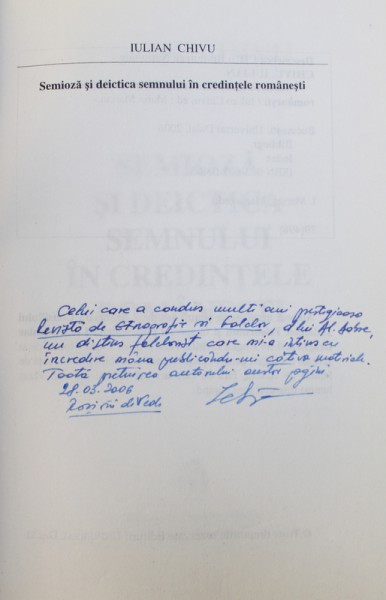 IULIAN CHIVU
Semioză și deictica semnului în credințele românești
SEMIOZĂ
ȘI DEICTICA
SEMNULUI
ÎN CREDINȚELE
Celui care a condus mulți ani prestigioasa
Revistă de etnografie și folclor, d-lui Al. Dobre,
un distins folclorist care mi-a întins cu
încredere mâna publicându-mi câteva materiale.
Toată prețuirea autorului acestor pagini.
28.03.2006
Roșiorii de Vede